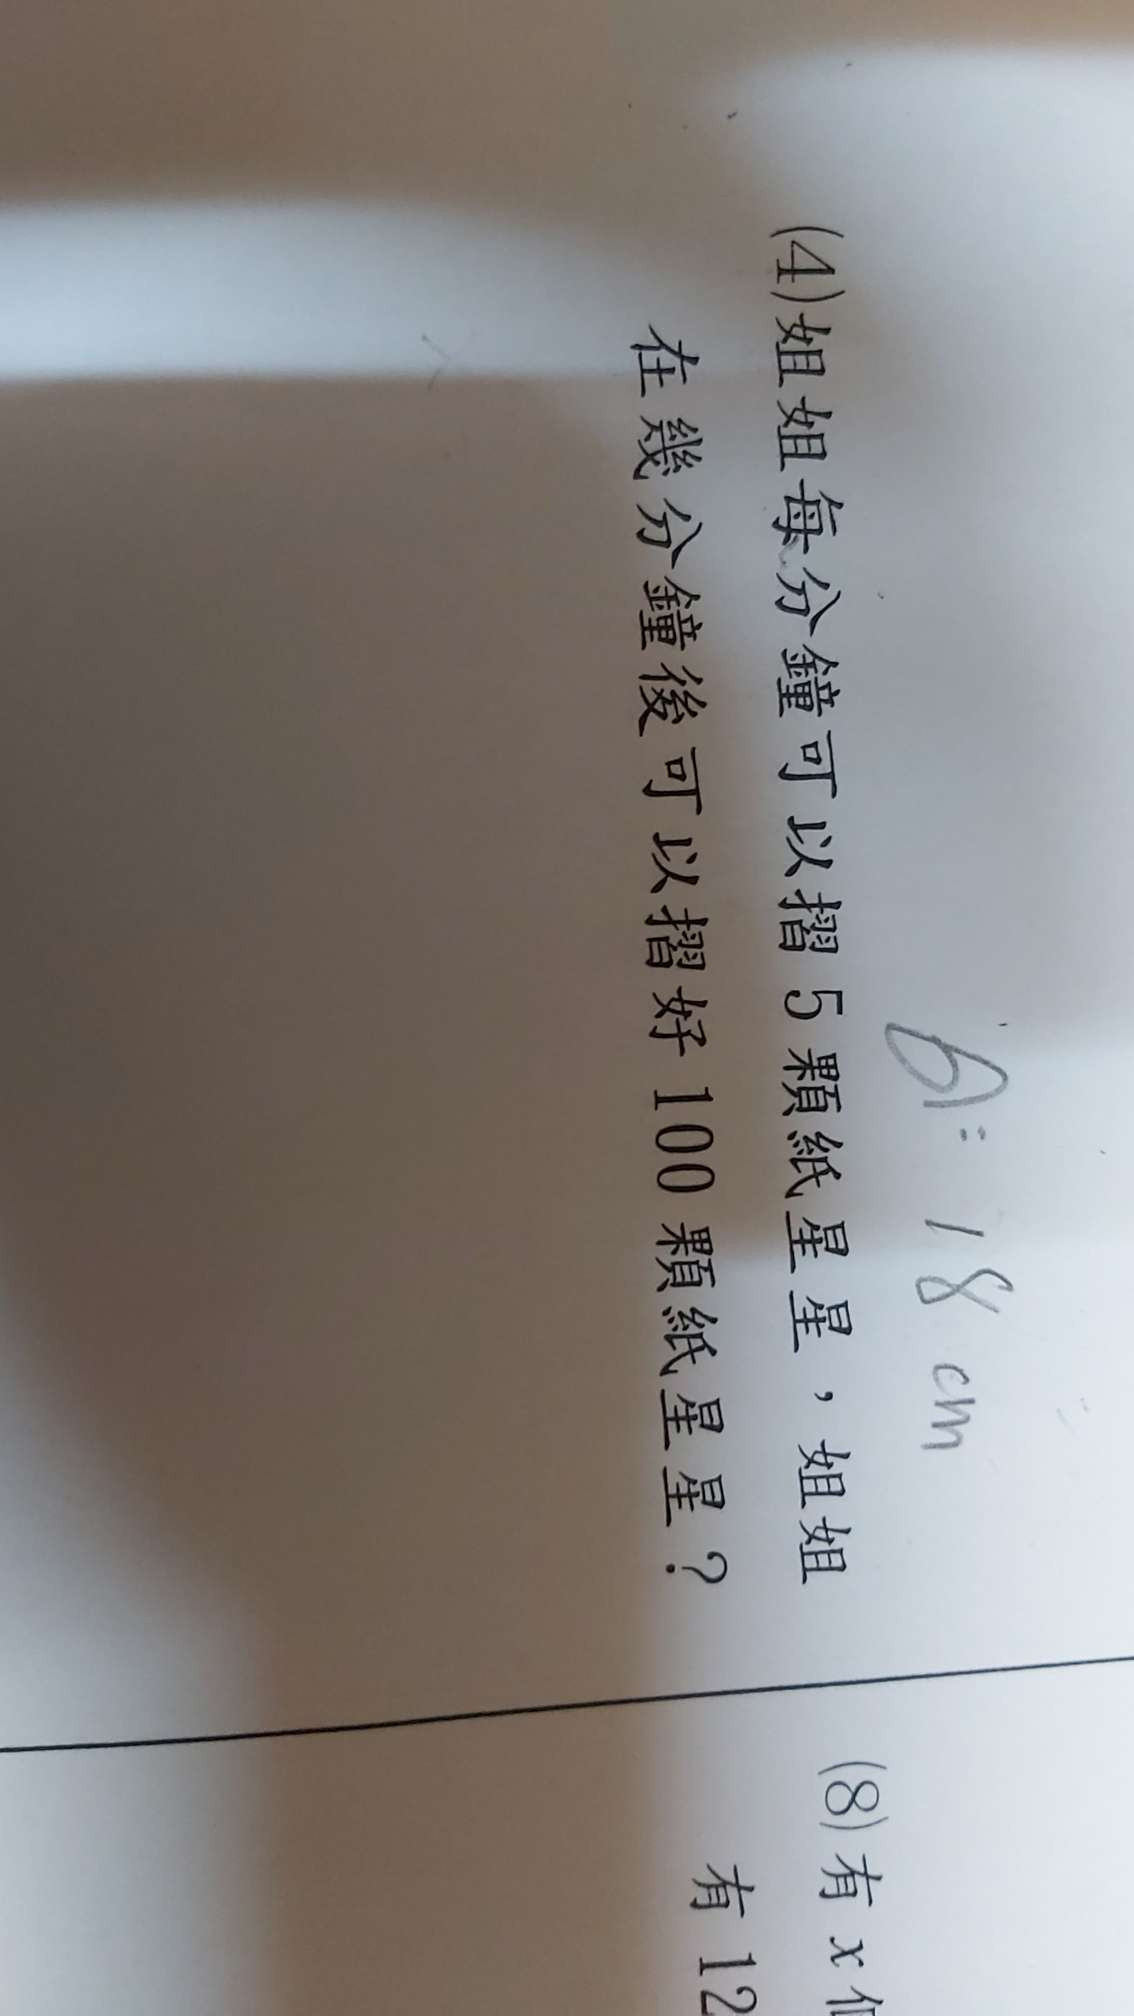 A: 18 cm
(4)姐姐每分鐘可以摺 5 顆紙星星，姐姐
在幾分鐘後可以摺好 100 顆紙星星？
(8)有 x
有 12